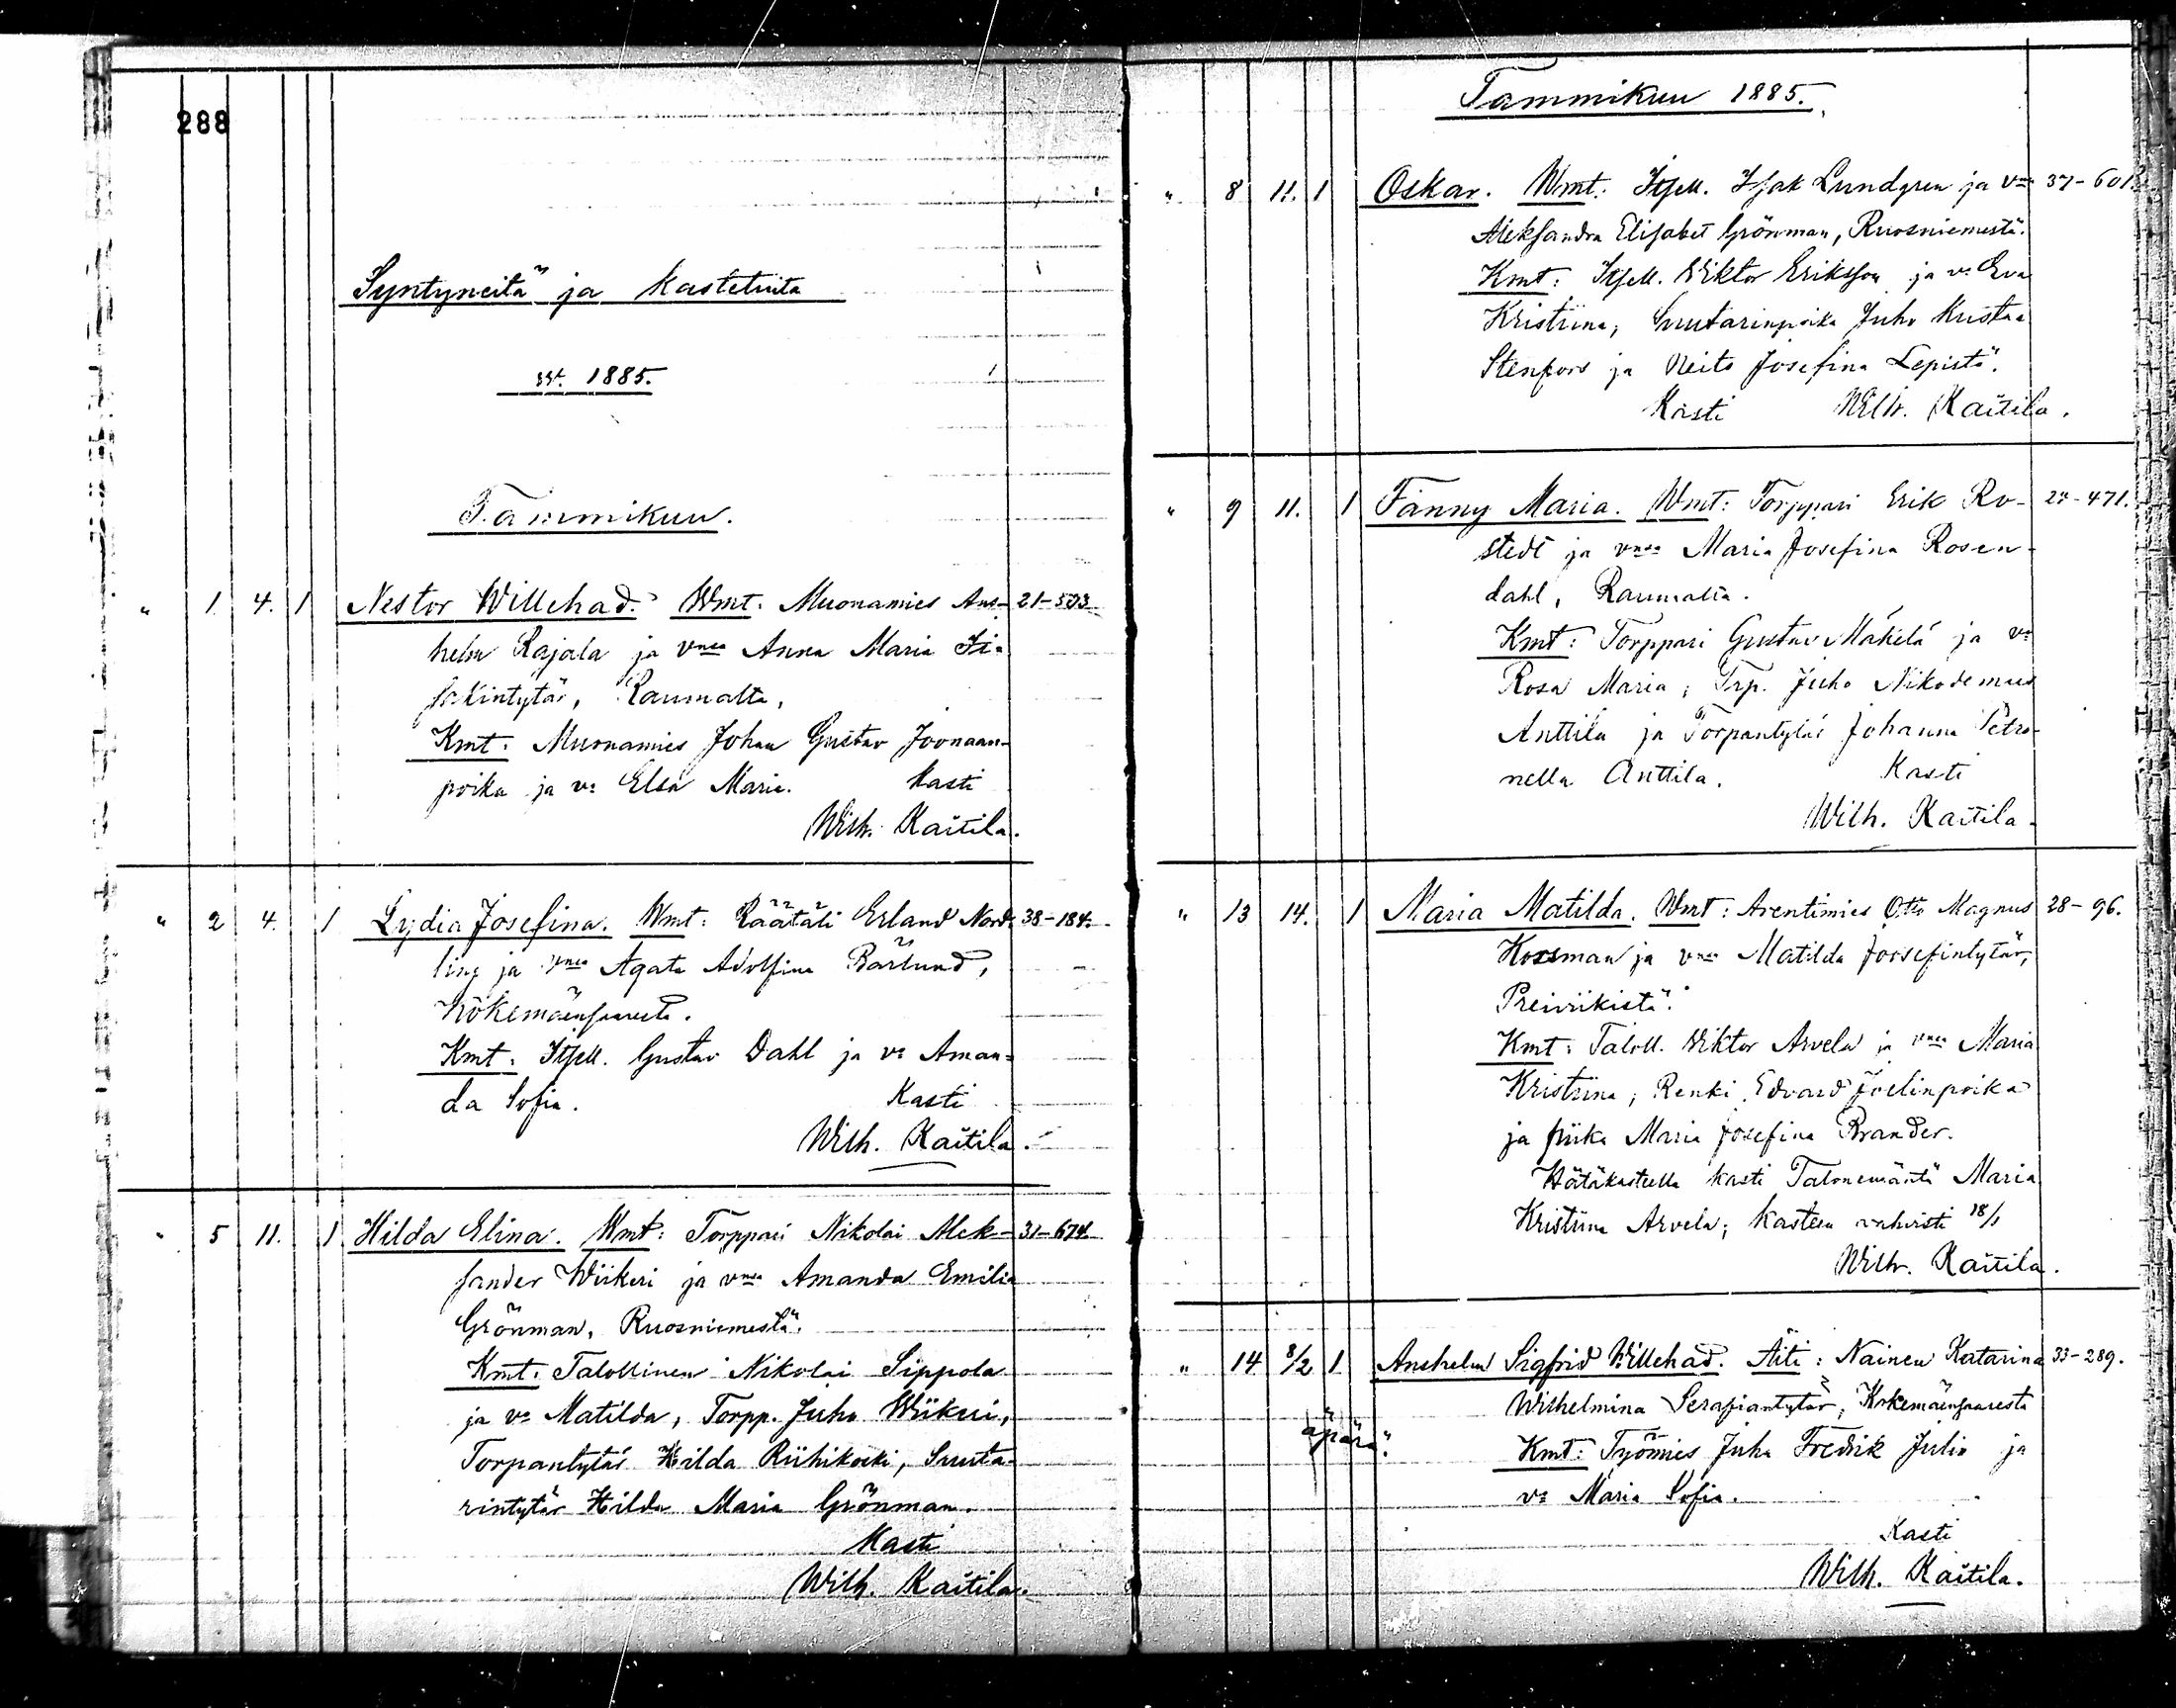 288
Syntyneitä ja kastetuita
vv. 1885.
Tammikuu.
" 1. 4. 1 Nestor Willehad. Wmt. Muonamies Ans- 21-503
helm Rajala ja vmsa Anna Maria Ii-
sakintytär, Raumalta,
Kmt: Muonamies Johan Gustav Joonaan-
poika ja vs Elsa Maria. Kasti
Wilh. Kaitila.
" 2 4. 1 Lydia Josefina. Wmt: Räätäli Erland Nord- 38-184.
ling ja vmsa Agata Adolfina Bärlund,
Kokemäensaaresta.
Kmt: Itsell. Gustav Dahl ja vs Aman-
da Sofia. Kasti
Wilh. Kaitila.
" 5 11. 1 Hilda Elina. Wmt: Torppari Nikolai Alek- 31-674
sander Wiikeri ja vmsa Amanda Emilia
Grönman, Ruosniemestä.
Kmt: Talollinen Nikolai Sippola
ja vs Matilda, Torpp. Juho Wiikeri,
Torpantytär Hilda Riihikoski, Suuta-
rintytär Hilda Maria Grönman.
Kasti
Wilh. Kaitila.
Tammikuu 1885.
" 8 11. 1 Oskar. Wmt: Itsell. Isak Lundgren ja vms 37-601.
Aleksandra Elisabet Grönman, Ruosniemestä.
Kmt: Itsell. Wiktor Eriksson ja vs Eva
Kristiina, Suutarinpoika Juho Kustaa
Stenfors ja Neito Josefina Lepistö.
Kasti Wilh. Kaitila.
" 9 11. 1 Fanny Maria. Wmt: Torppari Erik Ro- 27-471.
stedt ja vmsa Maria Josefina Rosen-
dahl, Raumalta.
Kmt: Torppari Gustav Mäkelä ja vs
Rosa Maria, Trp. Juho Nikodemus
Anttila ja Torpantytär Johanna Petro-
nella Anttila. Kasti
Wilh. Kaitila.
" 13 14. 1 Maria Matilda. Wmt: Arentimies Otto Magnus 28-96.
Kossman ja vmsa Matilda Joosefintytär,
Preiviikistä.
Kmt: Taloll. Wiktor Arvela ja vmsa Maria
Kristiina, Renki Edvard Joelinpoika
ja piika Maria Josefina Brander.
Hätäkasteella kasti Talonemäntä Maria
Kristiina Arvela; kasteen vahvisti 18/1
Wilh. Kaitila.
" 14 8/2 1. Anshelm Sigfrid Willehad. Äiti: Nainen Katarina 33-289.
Wilhelmina Serafiantytär, Kokemäensaaresta
äpärä.
Kmt: Työmies Juha Fredrik Julin ja
vs Maria Sofia.
Kasti
Wilh. Kaitila.